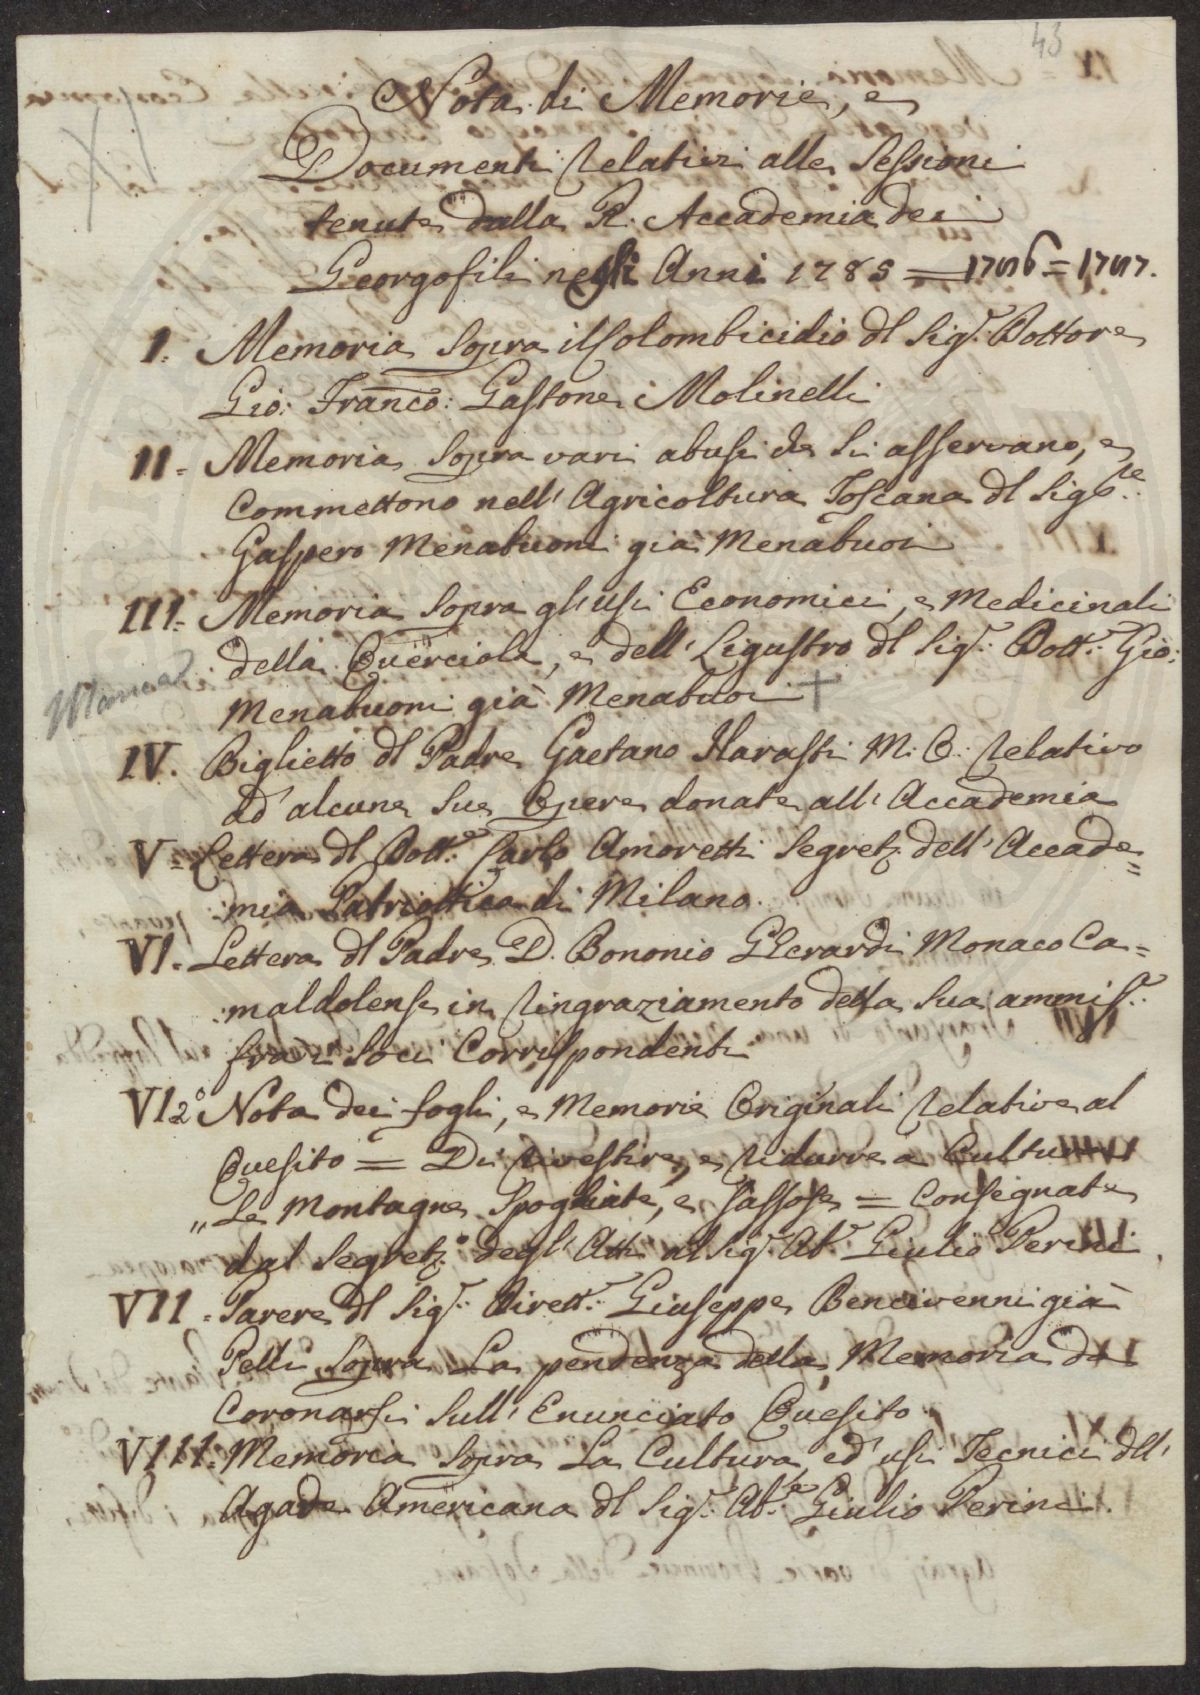 43
XI
Nota di Memorie, e
Documenti relativi alle Sessioni
tenute dalla R. Accademia dei
Georgofili negli Anni 1785 = 1786 = 1787.
I. Memoria Sopra il Colombicidio dl Sig.r Dottore
Gio: Franco: Gastone Molinelli
II = Memoria Sopra vari abusi che Si asservano, e
Commettono nell' Agricoltura Toscana dl Sig.re
Gaspero Menabuoni già Menabuoi
III = Memoria Sopra gl'usi Economici, e Medicinali
della Querciola, e dell' Ligustro dl Sig.r Dott.r Gio:
Manca
Menabuoni già Menabuoi +
IV. Biglietto dl Padre Gaetano Harasti M. O. relativo
ad' alcune Sue Opere donate all' Accademia
V = Lettera dl Dott.e Carlo Amoretti Segret.o dell' Accade=
mia Patriottica di Milano.
VI. Lettera dl Padre D. Bononio Gherardi Monaco Ca=
:maldolense in ringraziamento della Sua ammis.e
fra i Soci Corrispondenti
VI 2.o Nota dei fogli, e Memorie Originali relative al
Quesito = Di rivestire, e ridurre a Cultura
„ Le Montagne Spogliate, e Sassose = Consegnate
dal Segret.o degl' Atti al Sig.r Ab.e Giulio Perini
VII = Parere dl Sig.r Dirett.r Giuseppe Bencivenni già
Pelli Sopra La pendenza della Memoria da
Coronarsi Sull' Enunciato Quesito
VIII = Memoria Sopra La Cultura ed' usi Tecnici dll'
Agave Americana dl Sig.r Ab.e Giulio Perini.